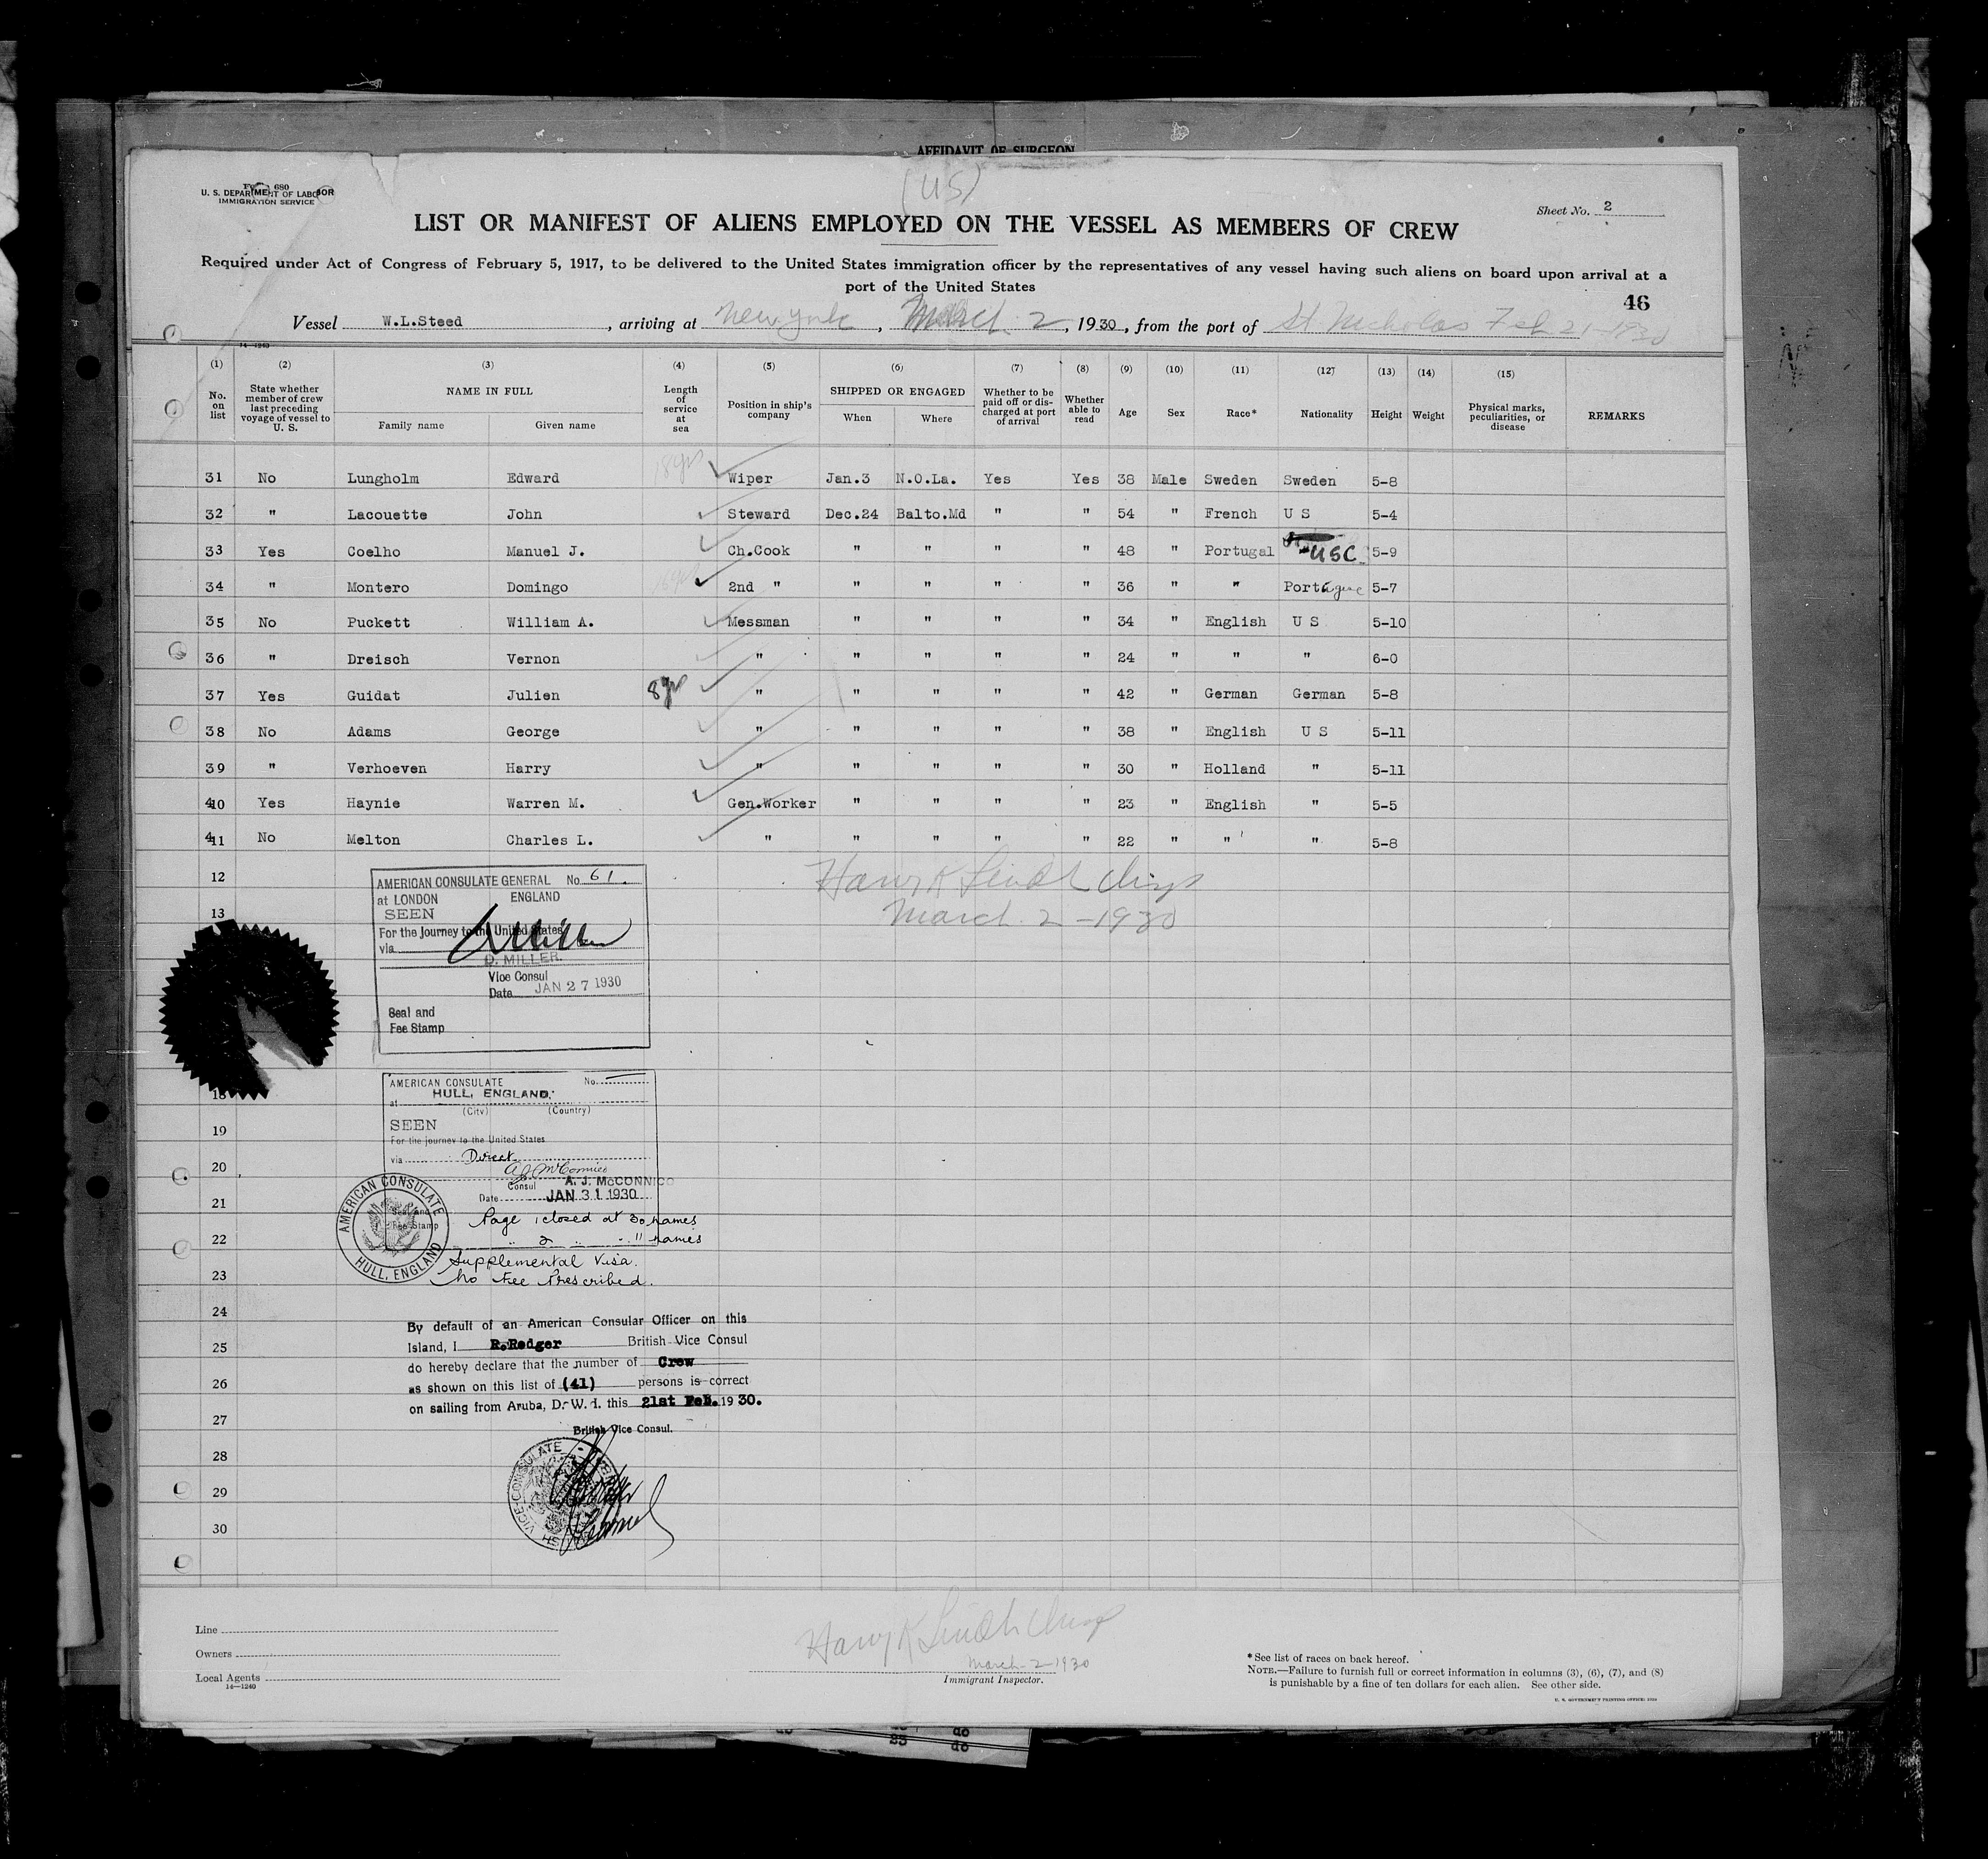 AFFIDAVIT OF SURGEON
680
U. S. DEPARTMENT OF LABOR
IMMIGRATION SERVICE
(US)
Sheet No. 2
LIST OR MANIFEST OF ALIENS EMPLOYED ON THE VESSEL AS MEMBERS OF CREW
Required under Act of Congress of February 5, 1917, to be delivered to the United States immigration officer by the representatives of any vessel having such aliens on board upon arrival at a
port of the United States
46
Vessel W.L.Steed, arriving at New York, March 2, 1930, from the port of St Nicholas Feb 21-1930
14—1240
(1) (2) (3) (4) (5) (6) (7) (8) (9) (10) (11) (12) (13) (14) (15)
No. on list State whether member of crew last preceding voyage of vessel to U. S. NAME IN FULL Family name Given name Length of service at sea Position in ship's company SHIPPED OR ENGAGED When Where Whether to be paid off or discharged at port of arrival Whether able to read Age Sex Race* Nationality Height Weight Physical marks, peculiarities, or disease REMARKS
31 No Lungholm Edward 18yrs Wiper Jan.3 N.O.La. Yes Yes 38 Male Sweden Sweden 5-8
32 " Lacouette John Steward Dec.24 Balto.Md " " 54 " French U S 5-4
33 Yes Coelho Manuel J. Ch.Cook " " " " 48 " Portugal USC 5-9
34 " Montero Domingo 2nd " " " " " 36 " " Portugue 5-7
35 No Puckett William A. Messman " " " " 34 " English U S 5-10
36 " Dreisch Vernon " " " " " 24 " " " 6-0
37 Yes Guidat Julien 8yrs " " " " " 42 " German German 5-8
38 No Adams George " " " " " 38 " English U S 5-11
39 " Verhoeven Harry " " " " " 30 " Holland " 5-11
410 Yes Haynie Warren M. Gen.Worker " " " " 23 " English " 5-5
411 No Melton Charles L. " " " " " 22 " " " 5-8
12
13
Harry K
March 2-1930
AMERICAN CONSULATE GENERAL No. 61.
at LONDON ENGLAND
SEEN
For the Journey to the United States
via
D. MILLER.
Vice Consul
Date JAN 27 1930
Seal and
Fee Stamp
18
19
20
21
22
23
24
25
26
27
28
29
30
AMERICAN CONSULATE No.
at HULL, ENGLAND.
(City) (Country)
SEEN
For the journey to the United States
via Direct
A. J. McCONNICO
Consul
Date JAN 31 1930
Seal and
Fee Stamp
AMERICAN CONSULATE
HULL, ENGLAND
Page 1 closed at 30 names
" 2 " " 11 names
Supplemental Visa.
No Fee Prescribed.
By default of an American Consular Officer on this
Island, I R.Rodger British Vice Consul
do hereby declare that the number of Crew
as shown on this list of (41) persons is correct
on sailing from Aruba, D. W. I. this 21st Feb. 1930.
British Vice Consul.
VICE-CONSULATE
Line
Owners
Local Agents
14—1240
Harry K
March-2-1930
Immigrant Inspector.
*See list of races on back hereof.
NOTE.—Failure to furnish full or correct information in columns (3), (6), (7), and (8)
is punishable by a fine of ten dollars for each alien. See other side.
U. S. GOVERNMENT PRINTING OFFICE:
do
33 do